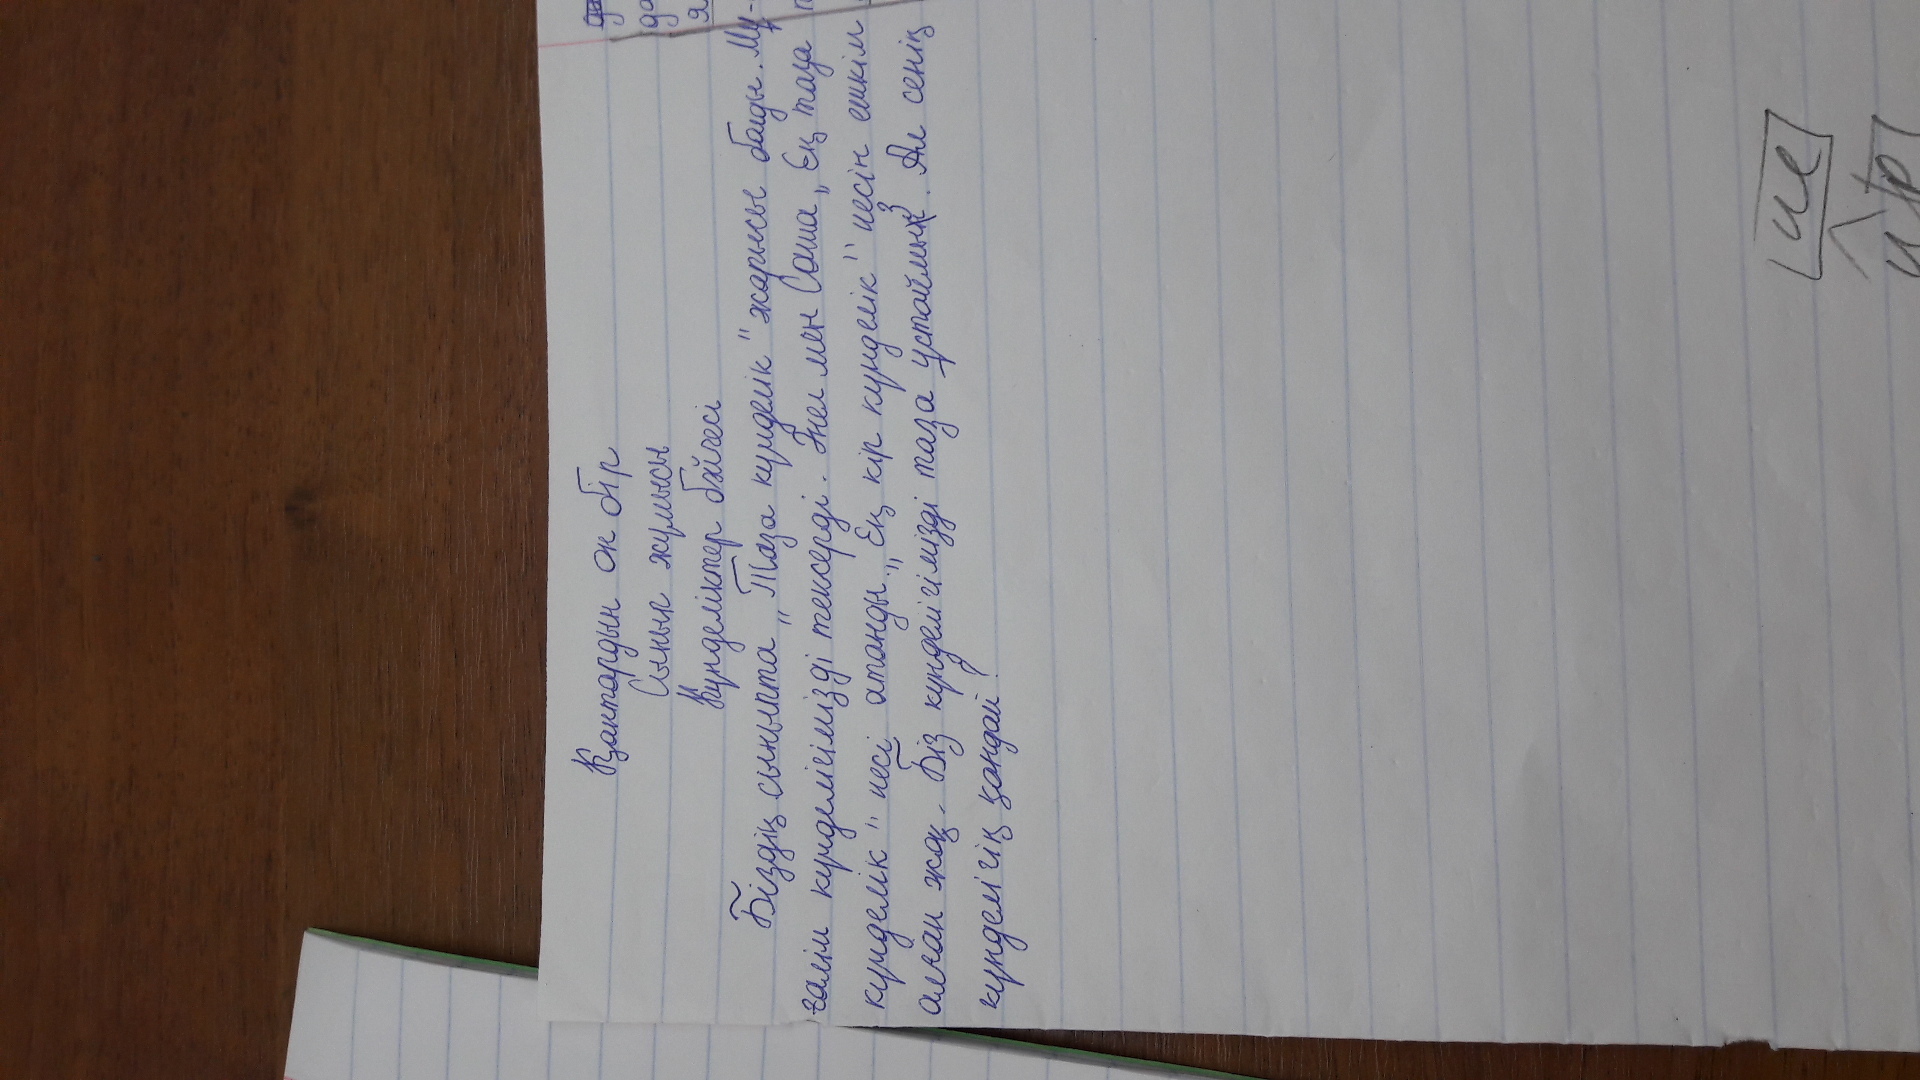 Қаңтардың он бір
Сынып жұмысы
Күнделіктер бәйгесі
Біздің сыныпта „Таза күнделік" жарысы болды. Мұ-
ғалім күнделігімізді тексерді. Әнел мен Саша „Ең таза
күнделік" иесі атанды. „Ең кір күнделік" иесін ешкім
алған жоқ. Біз күнделігімізді таза ұстаймыз. Ал сенің
күнделігің қандай?
ие